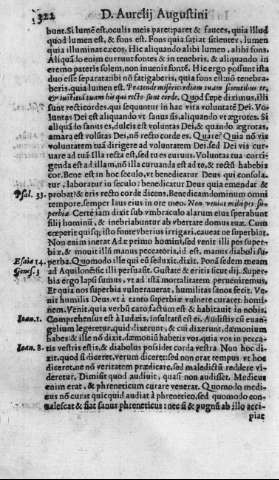 322 D. Aurelij Augustini
bunt. Si lumē est, oculis meis paret: paret & fauces, quia illud
quod lumen est, & fons est. Fons quia satiat sitientes, lumen
quia illuminat cæcos. Hic aliquando alibi lumen, alibi fons.
Aliquādo enim currunt fontes & in tenebris, & aliquando in
eremo pateris solem, non inuenis fontē. Hic ergo possunt ista
duo esse separata: ibi nō fatigaberis, quia fons est: nō tenebra-
beris, quia lumen est. Prætende misericordiam tuam scientibus te,
& iustitiam tuam his qui recto sunt corde. Quod sæpe dixim9, illi sūt
recti corde, qui sequuntur in hac vita voluntatē Dei. Vo-
luntas Dei est aliquando vt sanus sis, aliquando vt ægrotes. Si
aliquādo sanus es, dulcis est volūtas Dei, & quādo ægrotas,
amara est volūtas Dei, nō recto corde es. Quare? Quia nō vis
voluntatem tuā dirigere ad voluntatem Dei, sed Dei vis cur-
uare ad tuā. Illa recta est, sed tu es curuus. Voluntas tua corri-
genda est ad illam, nō illa curuanda est ad te, & rectū habebis
cor. Bene est in hoc sęculo, vt benedicatur Deus qui consola-
tur, laboratur in sęculo: benedicatur Deus quia emendat &
Psal. 33. probat: & eris recto corde dicens. Benedicam dominum omni
tempore, semper laus eius in ore meo. Non veniat mihi pes su-
perbiæ. Certè iam dixit sub vmbraculo alarum eius sperabunt
filij hominū, & inebriabuntur ab vbertate domus eius. Cum
cœperit quisq; isto fonte vberius irrigari, caueat ne superbiat.
Non enim inerat Adæ primo homini, sed venit illi pes super-
biæ, & mouit illū manus peccatoris, id est, manus diaboli su-
Esaiæ 14. perba. Quomodo ille qui eū seduxit, dixit. Ponā sedem meam
Genes. 3 ad Aquilonē: sic illi persuasit. Gustate & eritis sicut dij. Super-
bia ergo lapsi sumus, vt ad istā mortalitatem perueniremus.
Et quia nos superbia vulnerauerat, humilitas sanos fecit. Ve-
nit humilis Deus, vt à tanto superbiæ vulnere curaret homi-
nem. Venit, quia verbū caro factum est & habitauit in nobis.
Ioan. 1. Comprehensus est à Iudæis, insultatū est ei. Audistis cū euan-
gelium legeretur, quid dixerunt, & cui dixerunt, dæmonium
habes: & ille nō dixit. dæmoniū habetis vos, quia vos in pecca-
Ioan. 8. tis vestris estis, & diabolus possidet corda vestra. Non hoc di-
xit, quod si diceret, verum diceret: sed non erat tempus vt di-
ceret, ne nō veritatem prædicare, sed maledictū reddere vi-
deretur. Dimisit quod audiuit, quasi non audisset. Medicus
enim erat, & phreneticum curare venerat. Quomodo medi-
cus nō curat quicquid audiat à phrenetico, sed quomodo con-
ualescat & fiat sanus phreneticus: nec si & pugnū ab illo acci-
piat